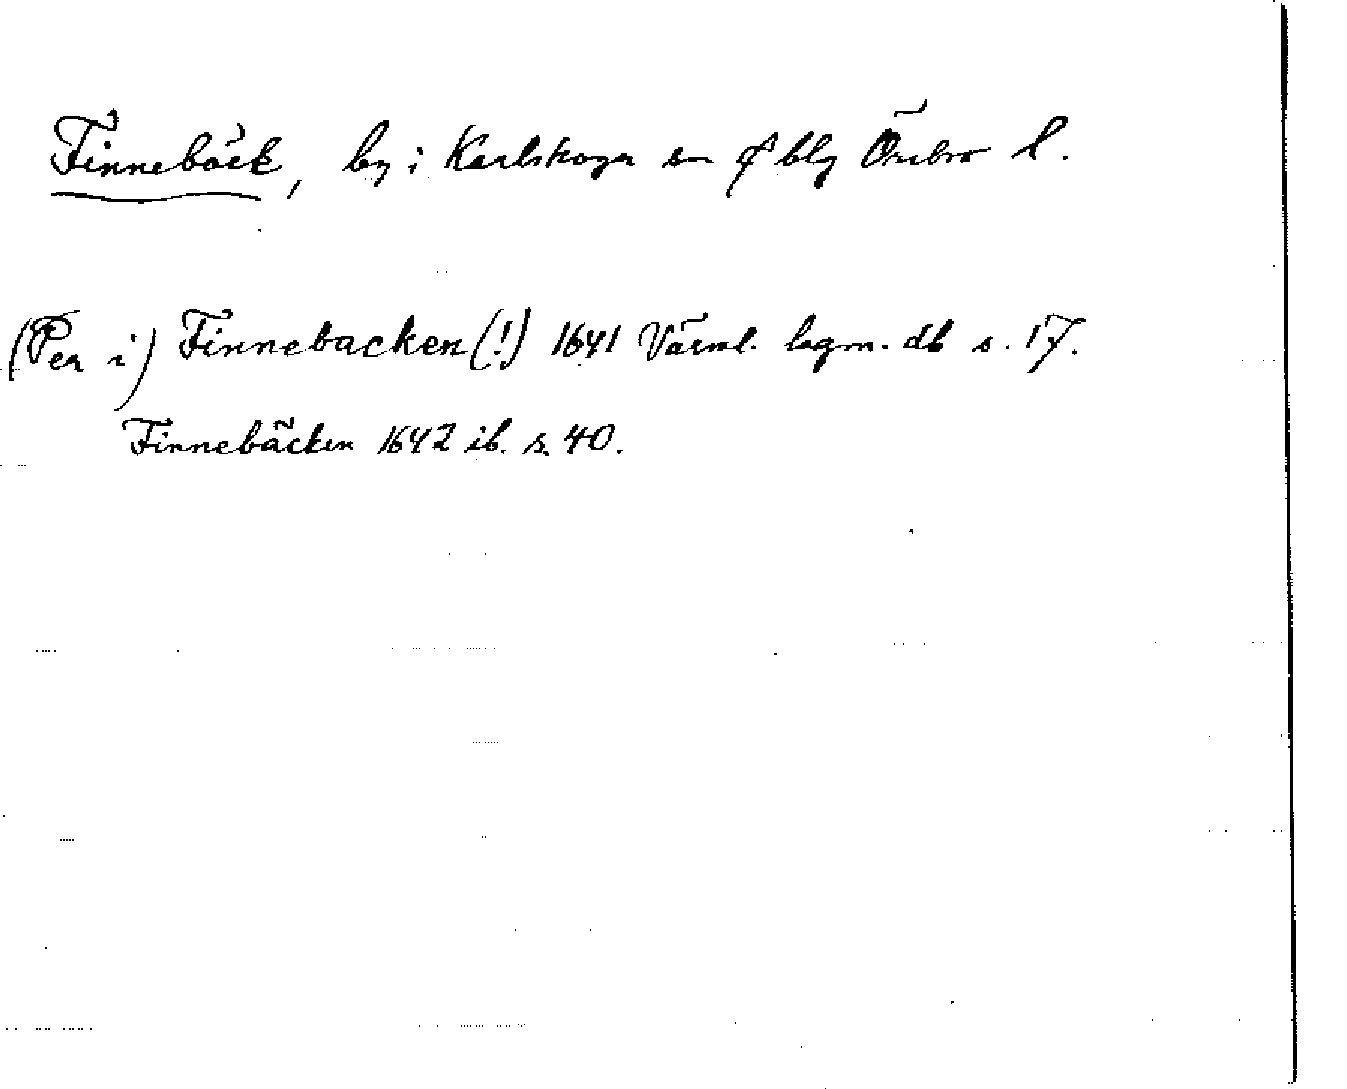 Finnebäck, by i Karlskoga sn o blg Örebro l.
(Per i) Finnebacken(!) 1641 Värml. lagm. db s. 17.
Finnebäcken 1642 ib. s. 40.